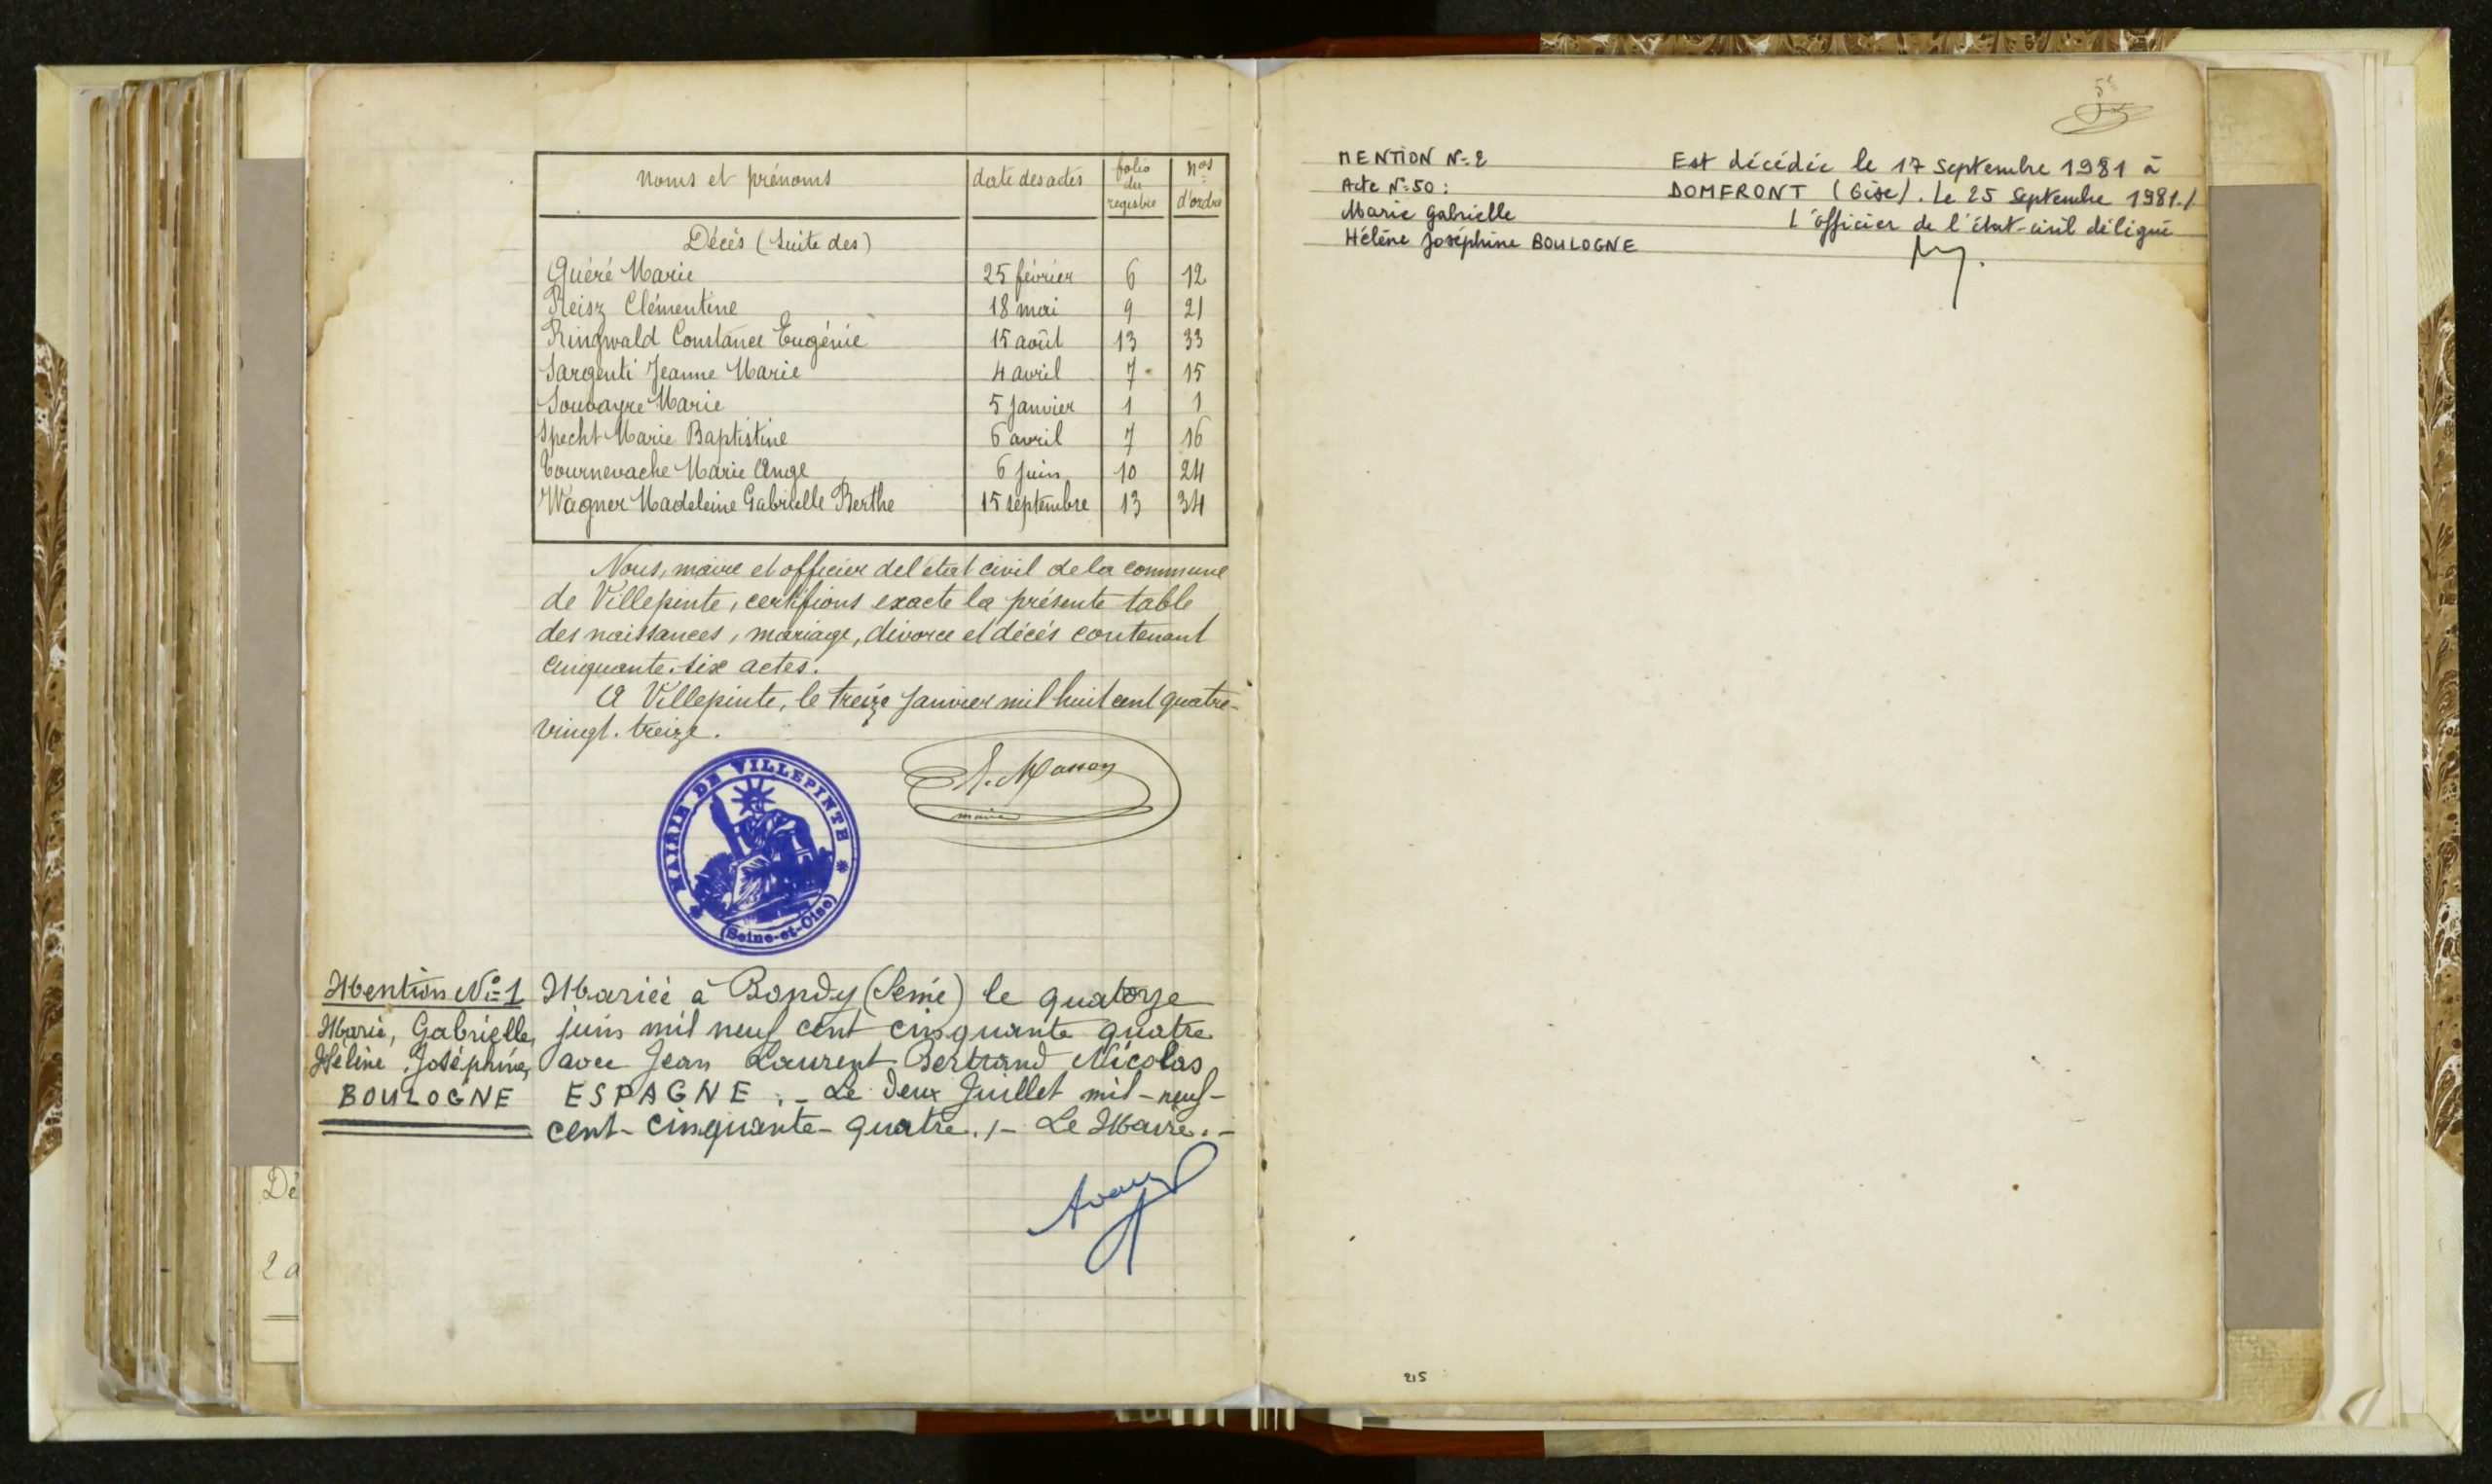 Noms et prénoms | date des actes | folio du registre | nos d'ordre
Décès (Suite des)
Quéré Marie | 25 février | 6 | 12
Reisz Clémentine | 18 mai | 9 | 21
Ringwald Constance Eugénie | 15 août | 13 | 33
Sargenti Jeanne Marie | 4 avril | 7 | 15
Souvayre Marie | 5 Janvier | 1 | 1
Specht Marie Baptistine | 6 avril | 7 | 16
Tournevache Marie Ange | 6 Juin | 10 | 24
Wagner Madeleine Gabrielle Berthe | 15 septembre | 13 | 34
Nous, maire et officier de l'état civil de la commune
de Villepinte, certifions exacte la présente table
des naissances, mariage, divorce et décès contenant
cinquante-six actes.
A Villepinte, le treize Janvier mil huit cent quatre-
vingt-treize.
A. Masson
maire
MAIRIE DE VILLEPINTE
(Seine-et-Oise)
Mention N° 1
Marie, Gabrielle,
Hélène, Joséphine,
BOULOGNE
Mariée à Bondy (Seine) le quatorze
juin mil neuf cent cinquante quatre
avec Jean Laurent Bertrand Nicolas
ESPAGNE . - Le deux Juillet mil-neuf-
cent-cinquante-quatre ./- Le Maire. -
Dé
2 a
5e
MENTION N°2
Acte N°50 :
Marie Gabrielle
Hélène Joséphine BOULOGNE
Est décédée le 17 Septembre 1981 à
DOMFRONT (Oise). Le 25 Septembre 1981./
L'officier de l'état-civil délégué
215